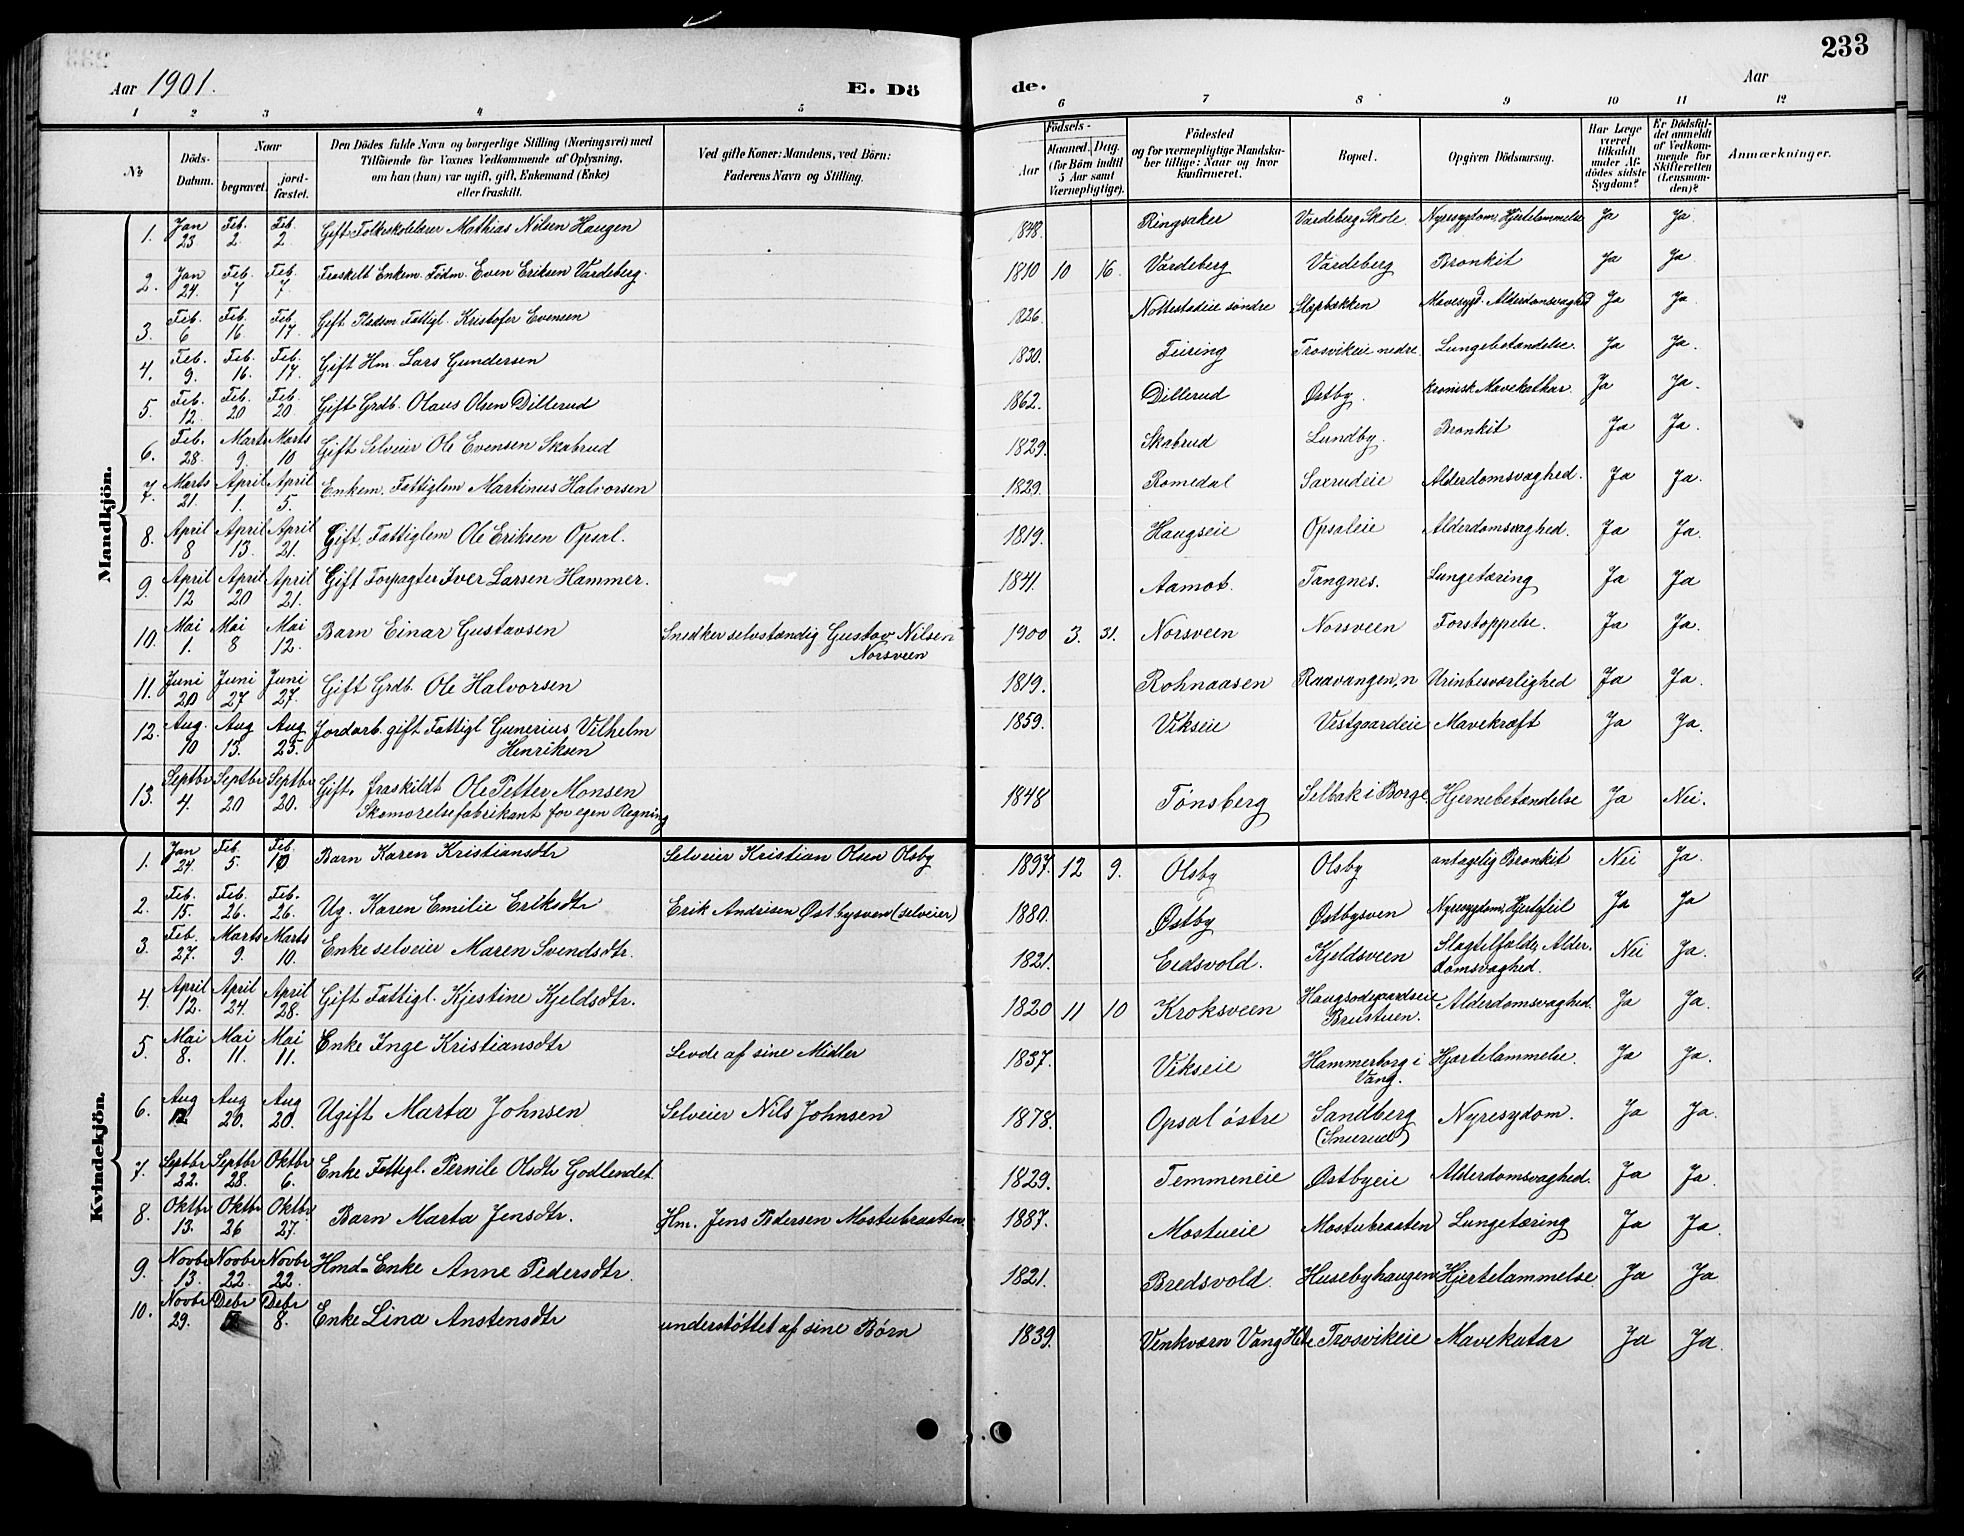 233
Aar 1901.
E. Dö
de.
Aar
1 2 3 4 5 6 7 8 9 10 11 12
No
Döds-Datum.
Naar
begravet.
jord-fæstet.
Den Dödes fulde Navn og borgerlige Stilling (Næringsvei) med
Tilföiende for Voxnes Vedkommende af Oplysning,
om han (hun) var ugift, gift, Enkemand (Enke)
eller fraskilt.
Ved gifte Koner: Mandens, ved Börn:
Faderens Navn og Stilling.
Födsels-
Aar
Maaned. Dag.
(for Börn indtil
5 Aar samt
Værnepligtige).
Födested
og for værnepligtige Mandska-
ber tillige: Naar og hvor
konfirmeret.
Bopæl.
Opgiven Dödsaarsag.
Har Læge
været
tilkaldt
under Af-
dödes sidste
Sygdom?
Er Dödsfal-
det anmeldt
af Vedkom-
mende for
Skifteretten
(Lensman-
den)?
Anmærkninger.
Mandkjön.
1. Jan 23 Feb. 2. Feb. 2 Gift Folkeskolelærer Mathias Nilsen Haugen 1848. Ringsaker Vardeberg Skole. Nyresygdom, Hjertelammelse Ja Ja.
2. Jan 24. Feb. 7 Feb. 7. Fraskilt Enkem. Födm. Even Eriksen Vardeberg. 1810 10 16. Vardeberg Vardeberg Bronkit Ja Ja.
3. Feb. 6 Feb. 16 Feb. 17. Gift Pladsm. Fattigl. Kristofer Evensen 1826. Nottestadeie söndre Slæpbækken Mavesygd. Alderdomsvaghed Ja Ja.
4. Feb. 9. Feb. 16. Feb. 17. Gift Hm. Lars Gundersen 1830. Feiring Trosvikeie nedre. Lungebetændelse. Ja Ja.
5. Feb. 12. Feb. 20 Feb. 20. Gift Grdb. Olaus Olsen Dillerud 1862. Dillerud Østby. kronisk Mavekathar. Ja Ja.
6. Feb. 28. Marts 9. Marts 10 Gift Selveier Ole Evensen Skabrud 1829. Skabrud Lundby. Bronkit Ja Ja.
7. Marts 21. April 1. April 5. Enkem. Fattiglem Martinus Halvorsen 1829. Romedal Saxrudeie Alderdomsvaghed. Ja Ja.
8. April 8 April 13. April 21. Gift, Fattiglem Ole Eriksen Opsal. 1819. Haugseie Opsaleie Alderdomsvaghed. Ja Ja.
9. April 12 April 20 April 21. Gift Forpagter Iver Larsen Hammer. 1841. Aamot. Tangnes. Lungetæring Ja Ja
10. Mai 1. Mai 8 Mai 12. Barn Einar Gustavsen Snedker selvstændig Gustav Nilsen
Norsveen
1900 3. 31. Norsveen Norsveen Forstoppelse. Ja Ja.
11. Juni 20 Juni 27 Juni 27. Gift Grdb. Ole Halvorsen 1819. Rohnaasen Raavangen, n Urinbesværlighed Ja Ja.
12. Aug. 10 Aug 13. Aug 25. Jordarb. gift Fattigl Gunerius Vilhelm
Henriksen
1859. Vikseie Vestgaardeie Mavekræft Ja Ja.
13. Septbr 4. Septbr 20 Septbr 20. Gift, fraskildt Ole Petter Monsen
Skomørelsefabrikant for egen Regning
1848 Tønsberg Selbak i Borge Hjernebetændelse Ja Nei.
Kvindekjön.
1. Jan 24. Feb. 5. Feb. 10 Barn Karen Kristiansdtr Selveier Kristian Olsen Olsby 1897. 12 9. Olsby Olsby antagelig Bronkit Nei Ja.
2. Feb. 15. Feb. 26. Feb. 26. Ug. Karen Emilie Eriksdtr Erik Andrisen Østbysven (selveier) 1880. Østby Østbysven Nyresygdom, Hjertefeil Ja Ja
3. Feb. 27. Marts 9. Marts 10. Enke selveier Maren Svendsdtr. 1821. Eidsvold. Kjeldsveen Slagtilfælde, Alder-
domsvaghed.
Nei Ja.
4. April 12. April 24. April 28. Gift Fattigl. Kjestine Kjeldsdtr. 1820 11 10 Kroksveen Haugsodegaardseie
Brustuen.
Alderdomsvaghed. Ja Ja.
5. Mai 8. Mai 11. Mai 11. Enke Inge Kristiansdtr Levde af sine Midler 1837. Vikseie Hammerborg i
Vang.
Hjertelammelse. Ja Ja.
6. Aug 12. Aug 20. Aug 20. Ugift Marta Johnsen Selveier Nils Johnsen 1878. Opsal østre Sandberg
(Snerud)
Nyresydom. Ja Ja.
7. Septbr 22. Septbr 28. Oktbr 6. Enke Fattigl. Pernile Olsdtr Godlendet. 1829. Temmeneie Østbyeie Alderdomsvaghed. Ja Ja.
8. Oktbr 13. Oktbr 26 Oktbr. 27. Barn Marta Jensdtr. Hm. Jens Pedersen Mostubraaten. 1887. Mostueie Mostubraaten Lungetæring Ja Ja.
9. Novbr 13. Novbr 22. Novbr 22. Hmd-Enke Anne Pedersdtr. 1821. Bredsvold. Husebyhaugen Hjertelammelse Ja Ja
10. Novbr 29. Debr Debr 8. Enke Lina Anstensdtr understøttet af sine Børn 1839. Venkværn Vang Hde. Trosvikeie Mavekatar Ja Ja.